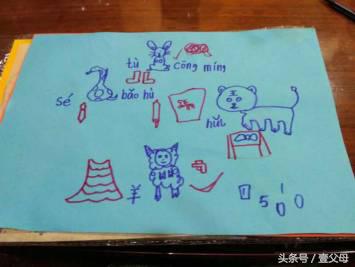 tù cōng míng
sé bǎo hù
hǔ
羊
5 1 0
头条号／壹父母